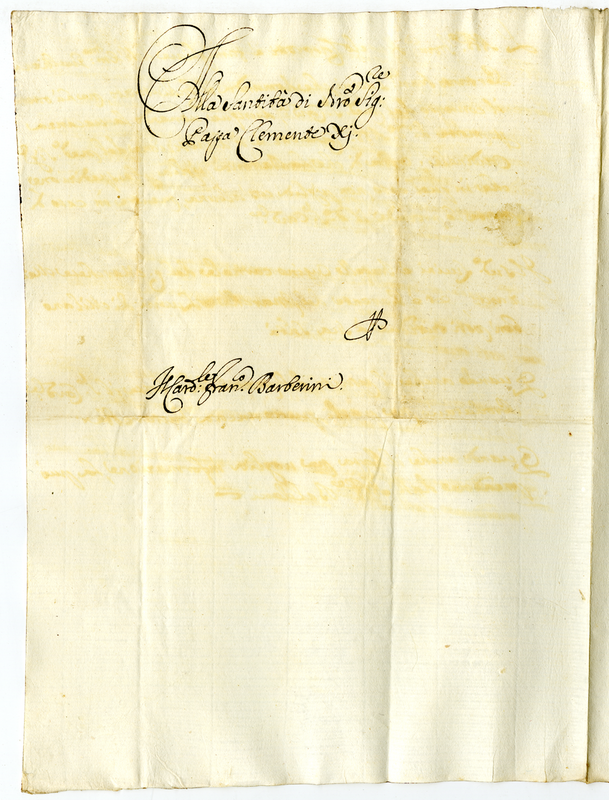 Alla Santità di Nro Sig:re
Papa Clemente Xj.
Il Card:le Fran:o Barberini.